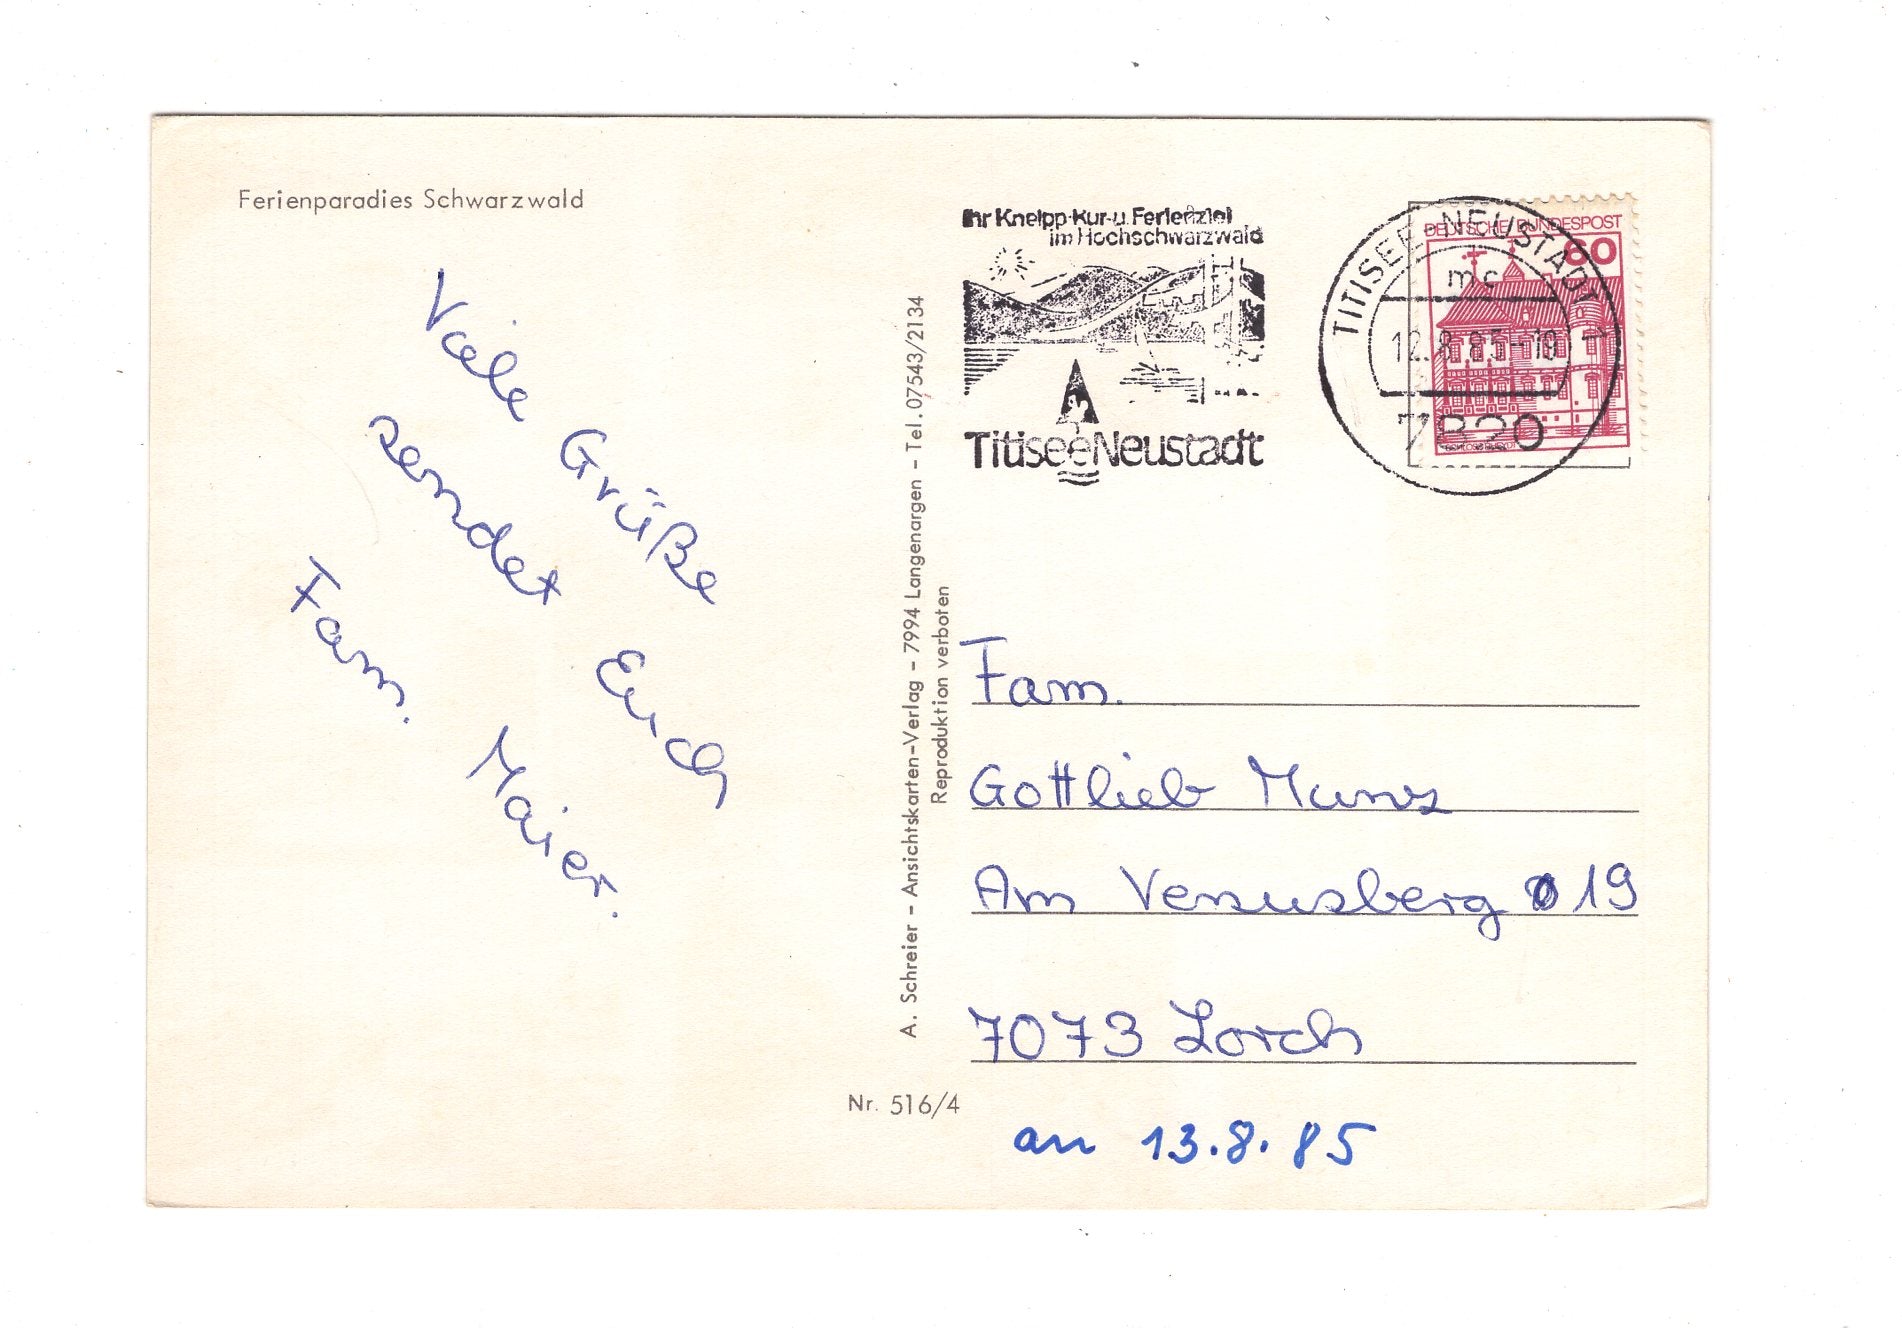 Ferienparadies Schwarzwald
Viele Grüße
sendet Euch
Fam. Maier.
A. Schreier - Ansichtskarten-Verlag - 7994 Langenargen - Tel. 07543/2134
Reproduktion verboten
Nr. 516/4
Ihr Kneipp-Kur-u. Ferienziel
im Hochschwarzwald
TitiseeNeustadt
TITISEE-NEUSTADT 1
mc
12.8.85-18
7820
DEUTSCHE BUNDESPOST
60
Fam.
Gottlieb Munz
Am Venusberg 19
7073 Lorch
an 13.8.85